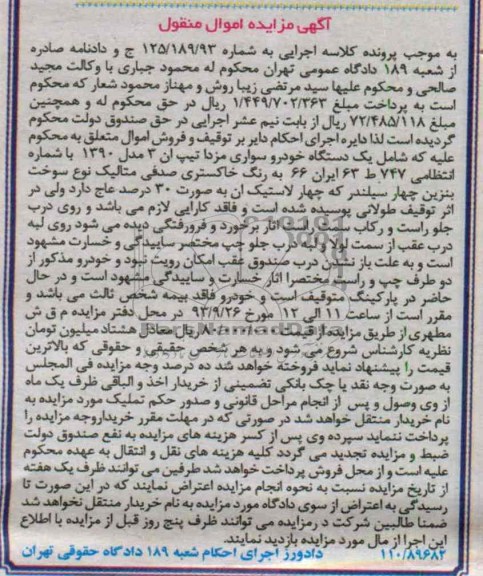 آگهی مزایده اموال منقول
به موجب پرونده کلاسه اجرایی به شماره ۱۲۵/۱۸۹/۹۳ ج و دادنامه صادره
از شعبه ۱۸۹ دادگاه عمومی تهران محکوم له محمود جباری با وکالت مجید
صالحی و محکوم علیها سید مرتضی زیبا روش و مهناز محمود شعار که محکوم
است به پرداخت مبلغ ۱/۴۴۹/۷۰۲/۳۶۳ ریال در حق محکوم له و همچنین
مبلغ ۷۲/۴۸۵/۱۱۸ ریال از بابت نیم عشر اجرایی در حق صندوق دولت محکوم
گردیده است لذا دایره اجرای احکام دایر بر توقیف و فروش اموال متعلق به محکوم
علیه که شامل یک دستگاه خودرو سواری مزدا تیپ ان ۳ مدل ۱۳۹۰ با شماره
انتظامی ۷۴۷ ط ۶۳ ایران ۶۶ به رنگ خاکستری صدفی متالیک نوع سوخت
بنزین چهار سیلندر که چهار لاستیک ان به صورت ۳۰ درصد عاج دارد ولی در
اثر توقیف طولانی پوسیده شده است و فاقد کارایی لازم می باشد و روی درب
جلو راست و رکاب سمت راست اثار برخورد و فرورفتگی دیده می شود روی لبه
درب عقب از سمت لولا و لبه درب جلو چپ مختصر ساییدگی و خسارت مشهود
است و به علت باز نشدن درب صندوق عقب امکان رویت نبود و خودرو مذکور از
دو طرف چپ و راست مختصرا اثار خسارت و ساییدگی مشهود است و در حال
حاضر در پارکینگ متوقیف است و خودرو فاقد بیمه شخص ثالث می باشد و
مقرر است از ساعت ۱۱ الی ۱۲ مورخ ۹۳/۹/۲۶ در محل دفتر مزایده م ق ش
مطهری از طریق مزایده از قیمت ریال معادل هشتاد میلیون تومان
نظریه کارشناس شروع می شود و به هر شخص حقیقی و حقوقی که بالاترین
قیمت را پیشنهاد نماید فروخته خواهد شد ده درصد وجه مزایده فی المجلس
به صورت وجه نقد یا چک بانکی تضمینی از خریدار اخذ و الباقی ظرف یک ماه
از وی وصول و پس از انجام مراحل قانونی و صدور حکم تملیک مورد مزایده به
نام خریدار منتقل خواهد شد در صورتی که در مهلت مقرر خریدار وجه مزایده را
پرداخت ننماید سپرده وی پس از کسر هزینه های مزایده به نفع صندوق دولت
ضبط و مزایده تجدید می گردد کلیه هزینه های نقل و انتقال به عهده محکوم
علیه است و از محل فروش پرداخت خواهد شد طرفین می توانند ظرف یک هفته
از تاریخ مزایده نسبت به نحوه انجام مزایده اعتراض نمایند که در این صورت تا
رسیدگی به اعتراض از سوی دادگاه مورد مزایده به نام خریدار منتقل نخواهد شد
ضمنا طالبین شرکت د رمزایده می توانند ظرف پنج روز قبل از مزایده با اطلاع
این اجرا از مال مورد مزایده بازدید نمایند.
۱۱۰/۸۹۶۸۲ دادورز اجرای احکام شعبه ۱۸۹ دادگاه حقوقی تهران